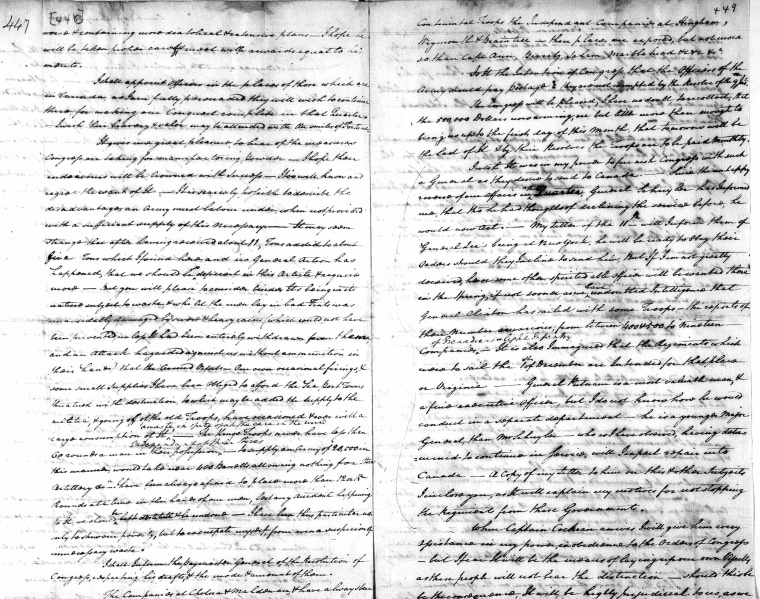 447
[448]
more & containing more diabolical & extensive plans — I hope he
will be taken proper care off & meet with rewards equal to his
merits.
I shall appoint Officers in the places of those which are
in Canada, as I am fully persuaded they will wish to continue
there for making our Conquest compleat in that Quarter
— I wish their bravery & valor may be attended with the smiles of Fortune
It gives me great pleasure to hear of the measures
Congress are taking for manufacturing Powder — I hope their
endeavours will be Crowned with success — I too well know and
regret the want of It — It is scarcely possible to describe the
disadvantages an Army must labour under, when not provided
with a sufficient supply of this Necessary — It may seem
strange that after having received about 11 Tons added to about
Five Tons which I found here and no General Action has
happened, that we should be deficient in this Article & require
more — But you will please to consider besides Its being in its
nature subject to waste, & whilst the men lay in bad Tents was
unavoidably damaged by severe & heavy rains (which could not have
been prevented unless It had been entirely withdrawn from the men
and an attack hazarded against us without ammunition in
their hands) that the Armed Vessels Our own occasional firings, &
some small supplies I have been Obliged to afford the Sea Port Towns
threatned with destruction, to which may be added the supply to the
militia, & going off of the old Troops, have occasioned & ever will a
large consumption of It,
— The Kings Troops never have less than
60 rounds a man in their possession, — to supply an Army of 20,000 in
this manner, would take near 400 Barrells allowing nothing for
Artillery &c — I have been always afraid to place more than 12 or 15
Rounds at a time in the hands of our men, lest any accident happening
to It, we should be left destitute & be undone — I have been this particular not
only to shew our poverty, but to exculpate myself from even a suspicion of
unnecessary waste
I shall inform the Paymaster General of the Resolution of
Congress, respecting his drafts & the mode & amount of them.
The Companies at Chelsea & Malden are, & have always been
449
Continental Troops the Independant Companies at Hingham,
Weymouth & Braintree in these places are exposed, but not more
so than Cape Ann, Beverly, Salem, Marblehead &c &c &c
Is It the Intention of Congress that the Officers of the
Army should pay Postage? they are not exempted by the Resolve of the
The Congress will be pleased, I have no doubt to recollect, that
the 500,000 Dollars now coming are but little more than enough to
bring us up to the first day of this Month that tomorrow will be
the last of It & by their Resolves the Troops are to be paid Monthly.
I wish It was in my power to furnish Congress with such
a General as they desire to send to Canada — Since the unhappy
reverse of our Affairs in that Quarter, General Schuyler has Informed
me, that tho he had thoughts of declining the service before, he
would now act. — My letter of the 11th will Inform them of
General Lee's being at New York, he will be ready to obey their
Orders should they Incline to send him, But If I am not greatly
deceived, he or some other spirited able Officer will be wanted there
in the Spring, if not sooner, as we have undoubted Intelligence that
General Clinton has sailed with some Troops — the reports of
their Number are various, from between 400 & 500 to Nineteen
Companies of Grenadiers & Light Infantry
— It is also Imagined that the Regiments which
were to sail the 1st of December are Intended for that place
or Virginia — General Putnam is a most valuable man, &
a fine executive Officer, but I do not know how he would
conduct in a separate department — he is a younger Major
General, than Mr Schuyler — who as I have observed, having deter-
-mined to continue in Service, will I expect repair into
Canada — A Copy of my Letter to him on this & other Subjects
I inclose you, as It will explain my motives for not stopping
the Regiments from these Governments.
When Captain Cochran arrives I will give him every
assistance in my power, in obedience to the Orders of Congress
— but I fear It will be the means of laying up our own Vessells,
as these people will not bear the distinction — should this be
be the consequence, It will be highly prejudicial to us, as we